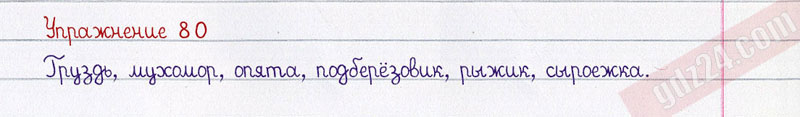 Упражнение 80
Груздь, мухомор, опята, подберёзовик, рыжик, сыроежка.
gdz24.com